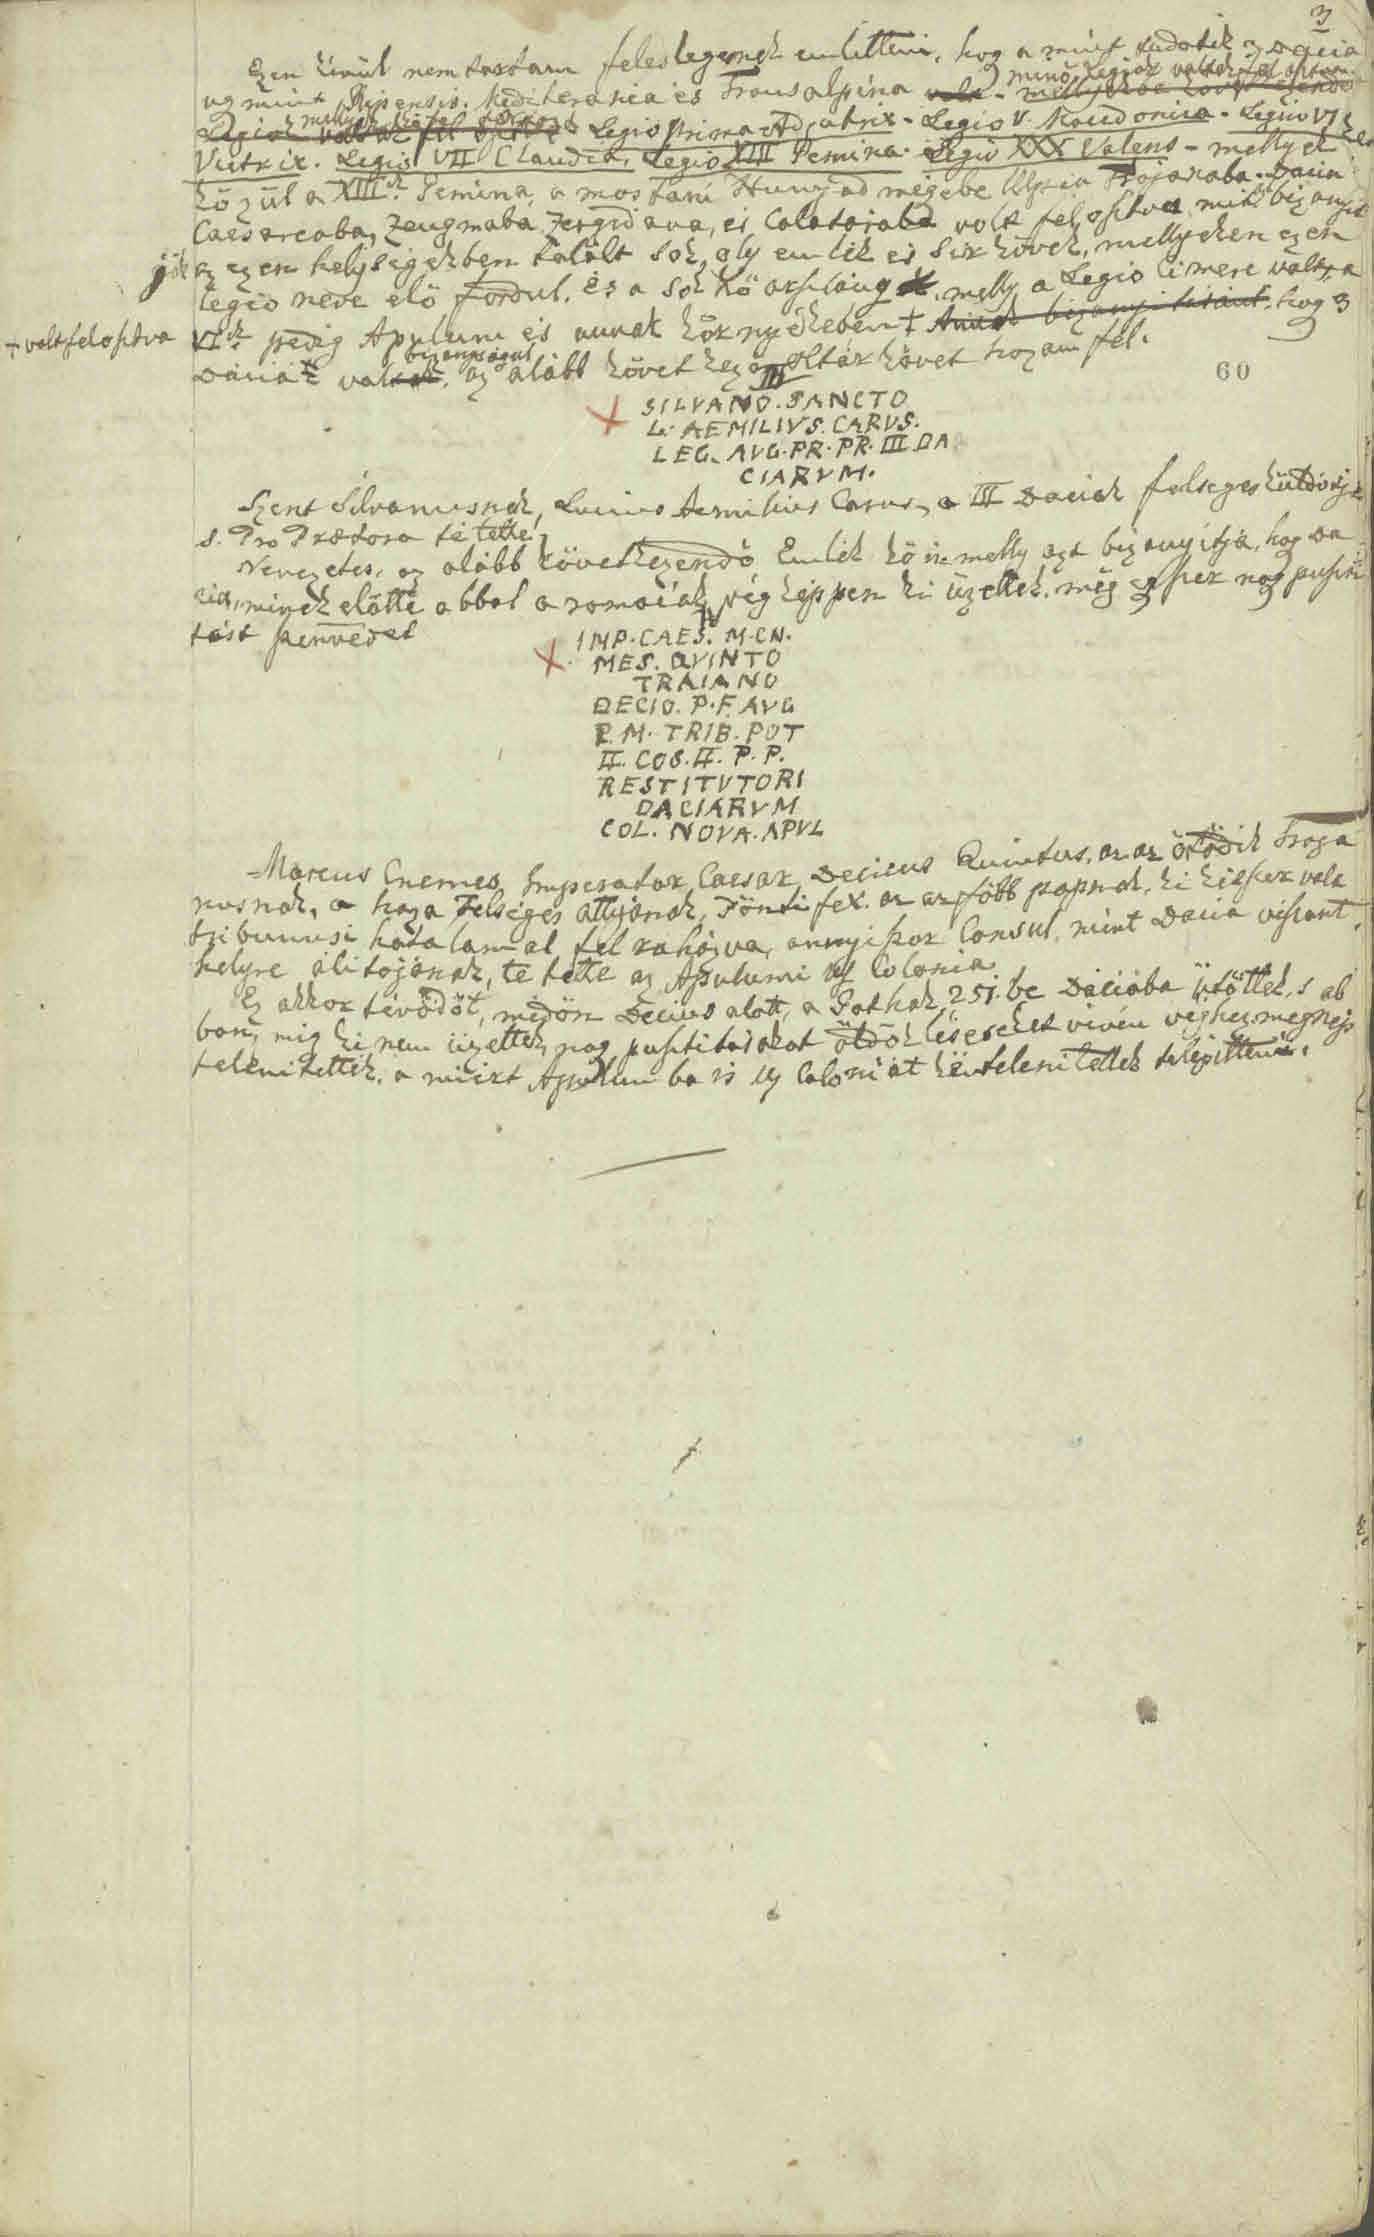 3
Ezen kívül nem tartam feleslegesnek emlitteni, hog a mint tudatik 3 Dacia
ugmint Ripensis. Mediteranea és Transalpina volt - minő Legiok voltak fel osztva
Legiok voltak fel osztva Legio prima Adjutrix - Legio V. Macedonica - Legio VI
Victrix. Legio VII Claudia, Legio XIII Gemina. Legio XXX Valens - mellyek
közül a XIIIk Gemina, a mostani Hunyad megyebe Ulpia Trajanaba. Dacia
Caesareaba, Zeugmaba Zergidava, es Calatajaba volt felosztva, mit bizonyit
az ezen helységekben talált sok, oly emlék és Sir kövek, mellyeken ezen
legio neve elö fordul. és a sok kö oroszlány, melly a Legio cimere volt, a
+ volt felosztva
VIk pedig Apulum és annak környekeben + Annak bizonyitásául, hog 3
Dacia volt, bizonyságul az alább következő oltár követ hozom fel.
60
III
SILVANO. SANCTO
L. AEMILIVS. CARVS.
LEG. AVG. PR. PR. III DA
CIARVM.
Szent Silvanusnak, Lucius Aemilius Carus, a III Daciak felseges küldötje
s. Pro Prætora té tette.
Nevezetes, az alább következendő Emlék kö is melly azt bizonyitja, hog Da
cia, minek elötte abbol a romaiak végképpen ki üzettek, még egyszer nag puszti
tást szenvedet
IV
IMP. CAES. M. CN.
MES. QVINTO
TRAIANO
DECIO. P. F. AVG
P. M. TRIB. POT
II. COS. II. P. P.
RESTITVTORI
DACIARVM
COL. NOVA. APVL
Marcus Cnemes Imperator Caesar, Decieus Quintus, az az ötödik Traja
nusnak, a haza Felséges attyának, Pontifex. az az föbb papnak, ki kétszer volt
tribunusi hatalamal fel ruházva, annyiszor Consul, mint Dacia viszont
helyre álitojának, te tette az Apulumi uj Colonia
Ez akkor tévödöt, midön Decius alatt, a Gothak 251.be Daciaba ütöttek, s ab
ban, mig ki nem üzettek, nag pusztitásokat öldökléseket vivén véghez, megnep
telenitettek, a miért Apulumba is uj Coloniát kéntelenitettek telepitteni.